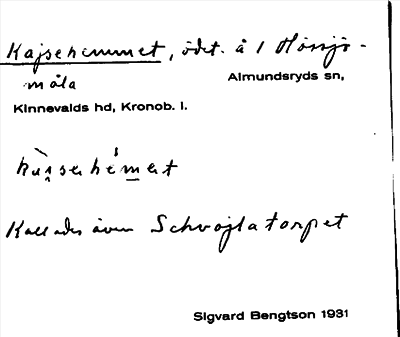 Kajsehemmet, ödet. å 1 Hönsjö-
måla
Almundsryds sn,
Kinnevalds hd, Kronob. l.
Kallades även Schvojlatorpet
Sigvard Bengtson 1931